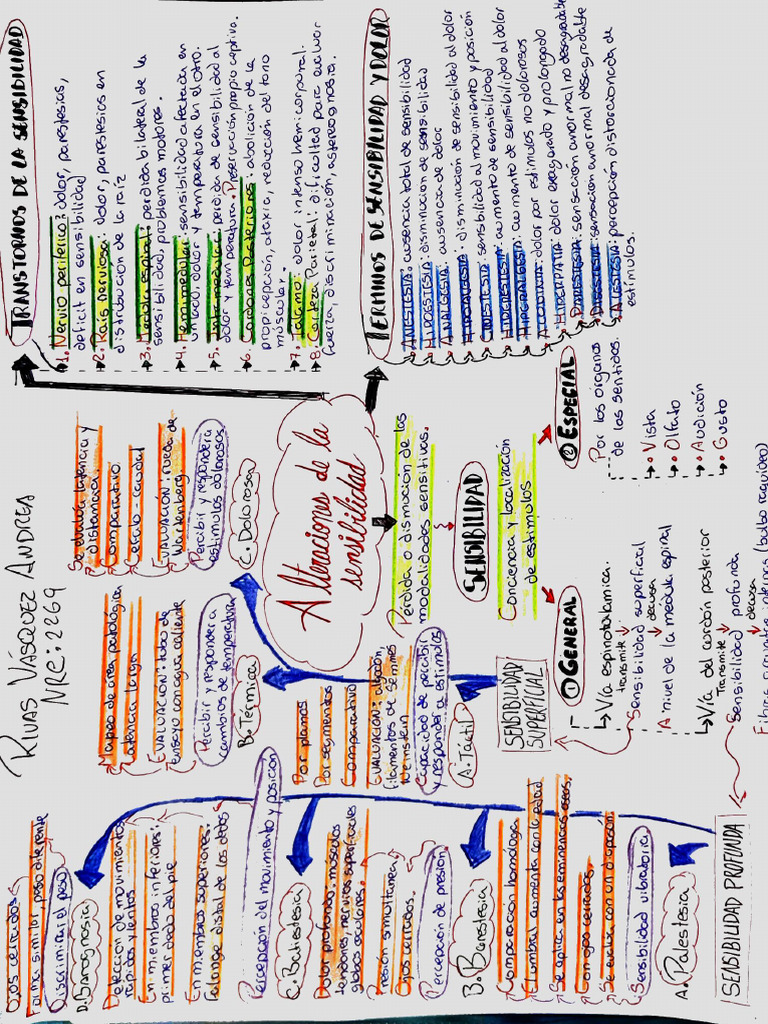 RIVAS VÁSQUEZ ANDREA
NRC: 2269
Alteraciones de la
sensibilidad
TRANSTORNOS DE LA SENSIBILIDAD
1. Nervio periferico: dolor, parestesias,
deficit en sensibilidad
2. Raís nerviosa: dolor, parestesias en
distribución de la raíz
3. Medula espinal: perdida bilateral de la
sensibilidad, problemas motores.
4. Hemimedular: sensibilidad afectación en
un lado, dolor y temperatura en el otro.
5. Intramedular: perdida de sensibilidad al
dolor y temperatura. Preservación propioceptiva.
6. Cordones Posteriores: abolición de la
propicepción, ataxia, reducción del tono
muscular.
7. Talamo: dolor intenso hemicorporal.
8. Corteza Parietal: dificultad para evaluar
fuerza, discriminación, astereognosia.
TERMINOS DE SENSIBILIDAD Y DOLOR
ANESTESIA: ausencia total de sensibilidad
HIPOESTESIA: disminución de sensibilidad
ANALGESIA: ausencia de dolor
HIPOALGESIA: disminución de sensibilidad al dolor
CINESTESIA: sensibilidad al movimiento y posición
HIPERESTESIA: aumento de sensibilidad
HIPERALGESIA: aumento de sensibilidad al dolor
ALODINIA: dolor por estimulos no dolorosos
HIPERPATIA: dolor exagerado y prolongado
PARESTESIA: sensación anormal no desagradable
DISESTESIA: sensación anormal desagradable
ALESTESIA: percepción distorcionada de
estimulos.
Perdida o dismoción de las
modalidades sensitivas.
SENSIBILIDAD
Conciencia y localización
de estimulos
① GENERAL
Vía espinotalamica.
transmite
Sensibilidad superficial
decusa
A nivel de la medula espinal
Vía del cordón posterior
Transmite
Sensibilidad profunda
decusa
② ESPECIAL
Por los organos
de los sentidos.
• Vista
• Olfato
• Audición
• Gusto
SENSIBILIDAD
SUPERFICIAL
A. Táctil
Capacidad de percibir
y responder a estimulos
EVALUACION: algodón
filamentos de semmes
weinstein
Comparativo
Por segmentos
Por planos
B. Térmica
Percibir y responder a
cambios de temperatura
EVALUACION: tubo de
ensayo con agua caliente
Mapeo de area patológica
C. Dolorosa
Percibir y responder a
estimulos dolorosos
EVALUACION: rueda de
Wartenberg
Cefalo-caudal
Comparativo
Se evalua latencia y
SENSIBILIDAD PROFUNDA
A. Palestesia
Sensibilidad vibratoria
Se evalua con un diapasón
Con ojos cerrados.
Se aplica en las eminencias oseas,
El umbral aumenta con la edad
Comparación homologa
B. Barestesia
Percepción de presion
Ojos cerrados.
Presión simultanea
Dolor profundo: musculos
tendones, nervios superficiales
globos oculares.
C. Batiestesia
Percepción del movimiento y posicion
En miembros superiores:
falange distal de los dedos
En miembros inferiores:
primer dedo del pie
Detección de movimientos
rapidos y lentos
D. Barognosia
Discriminar el peso
Forma similar peso diferente
Ojos cerrados